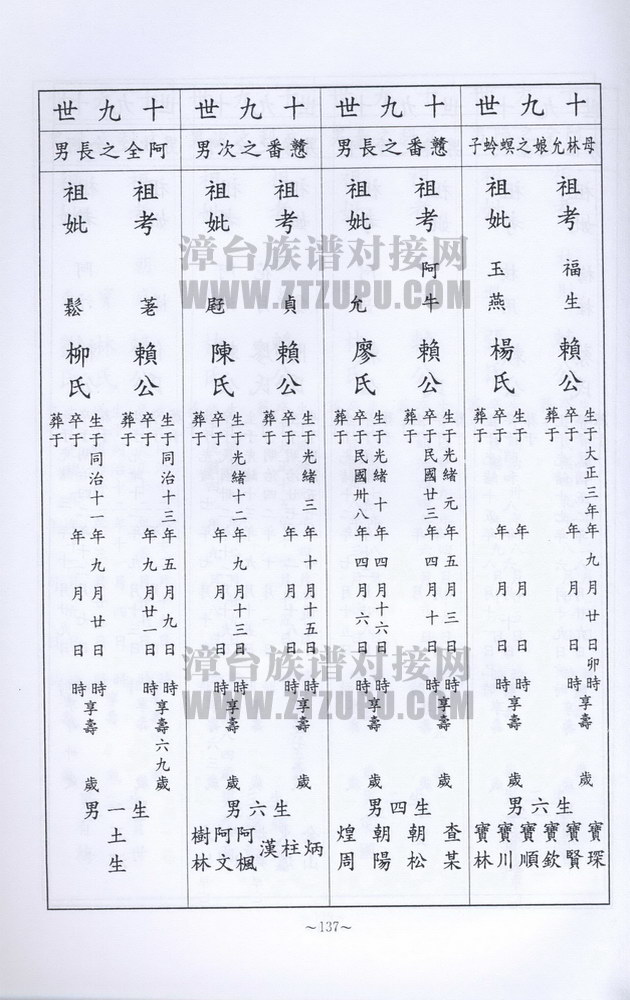 十九世
母林允娘之螟蛉子
祖考 福生 賴公
生于大正三年九月廿日卯時
卒于 年 月 日 時享壽 歲
葬于
祖妣 玉燕 楊氏
生于 年 月 日 時
卒于 年 月 日 時享壽 歲
葬于
生六男
寶琛
寶賢
寶欽
寶順
寶川
寶林
十九世
戇番之長男
祖考 阿牛 賴公
生于光緒元年五月三日 時
卒于民國廿三年四月十日 時享壽 歲
葬于
祖妣 允 廖氏
生于光緒十年四月十六日 時
卒于民國卅八年四月六日 時享壽 歲
葬于
生四男
查某
朝松
朝陽
煌周
十九世
戇番之次男
祖考 貞 賴公
生于光緒三年十月十五日 時
卒于 年 月 日 時享壽 歲
葬于
祖妣 陳氏
生于光緒十二年九月十三日 時
卒于 年 月 日 時享壽 歲
葬于
生六男
炳
柱
漢
阿楓
阿文
樹林
十九世
阿全之長男
祖考 荖 賴公
生于同治十三年五月九日 時
卒于 年九月廿一日 時享壽六九歲
葬于
祖妣 鬆 柳氏
生于同治十一年九月廿日 時
卒于 年 月 日 時享壽 歲
葬于
生一男
土生
~137~
漳台族谱对接网
WWW.ZTZUPU.COM
漳台族谱对接网
WWW.ZTZUPU.COM